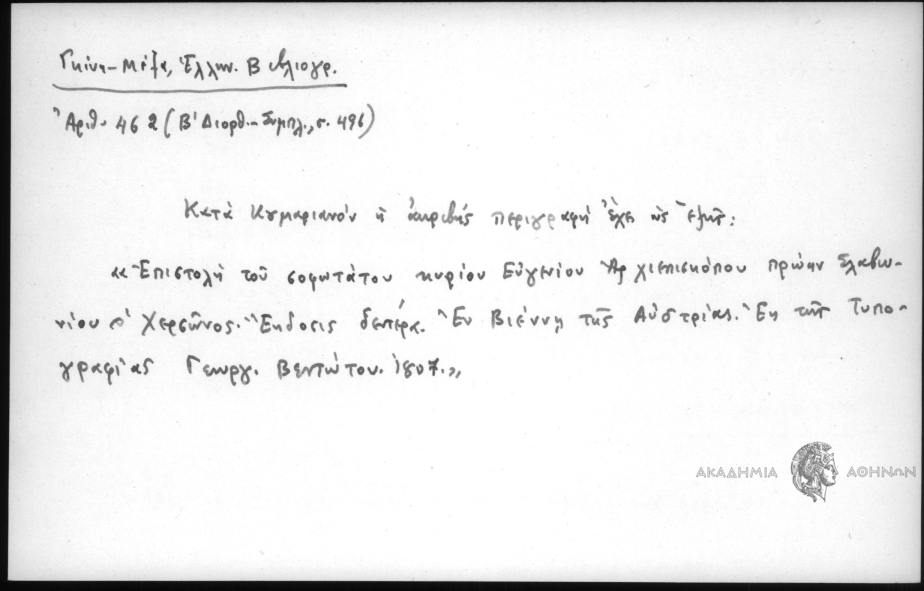 Γκίνη-Μέξα, Ἑλλην. Βιβλιογρ.
Ἀριθ. 462 (Β' Διορθ.-Συμπλ., σ. 496)
Κατὰ Κουμαριανὸν ἡ ἀκριβὴς περιγραφὴ ἔχει ὡς ἑξῆς:
«Ἐπιστολὴ τοῦ σοφωτάτου κυρίου Εὐγενίου Ἀρχιεπισκόπου πρώην Σλαβω-
νίου & Χερσῶνος. Ἔκδοσις δευτέρα. Ἐν Βιέννῃ τῆς Αὐστρίας. Ἐκ τῆς Τυπο-
γραφίας Γεωργ. Βεντώτου. 1807.»
ΑΚΑΔΗΜΙΑ ΑΘΗΝΩΝ